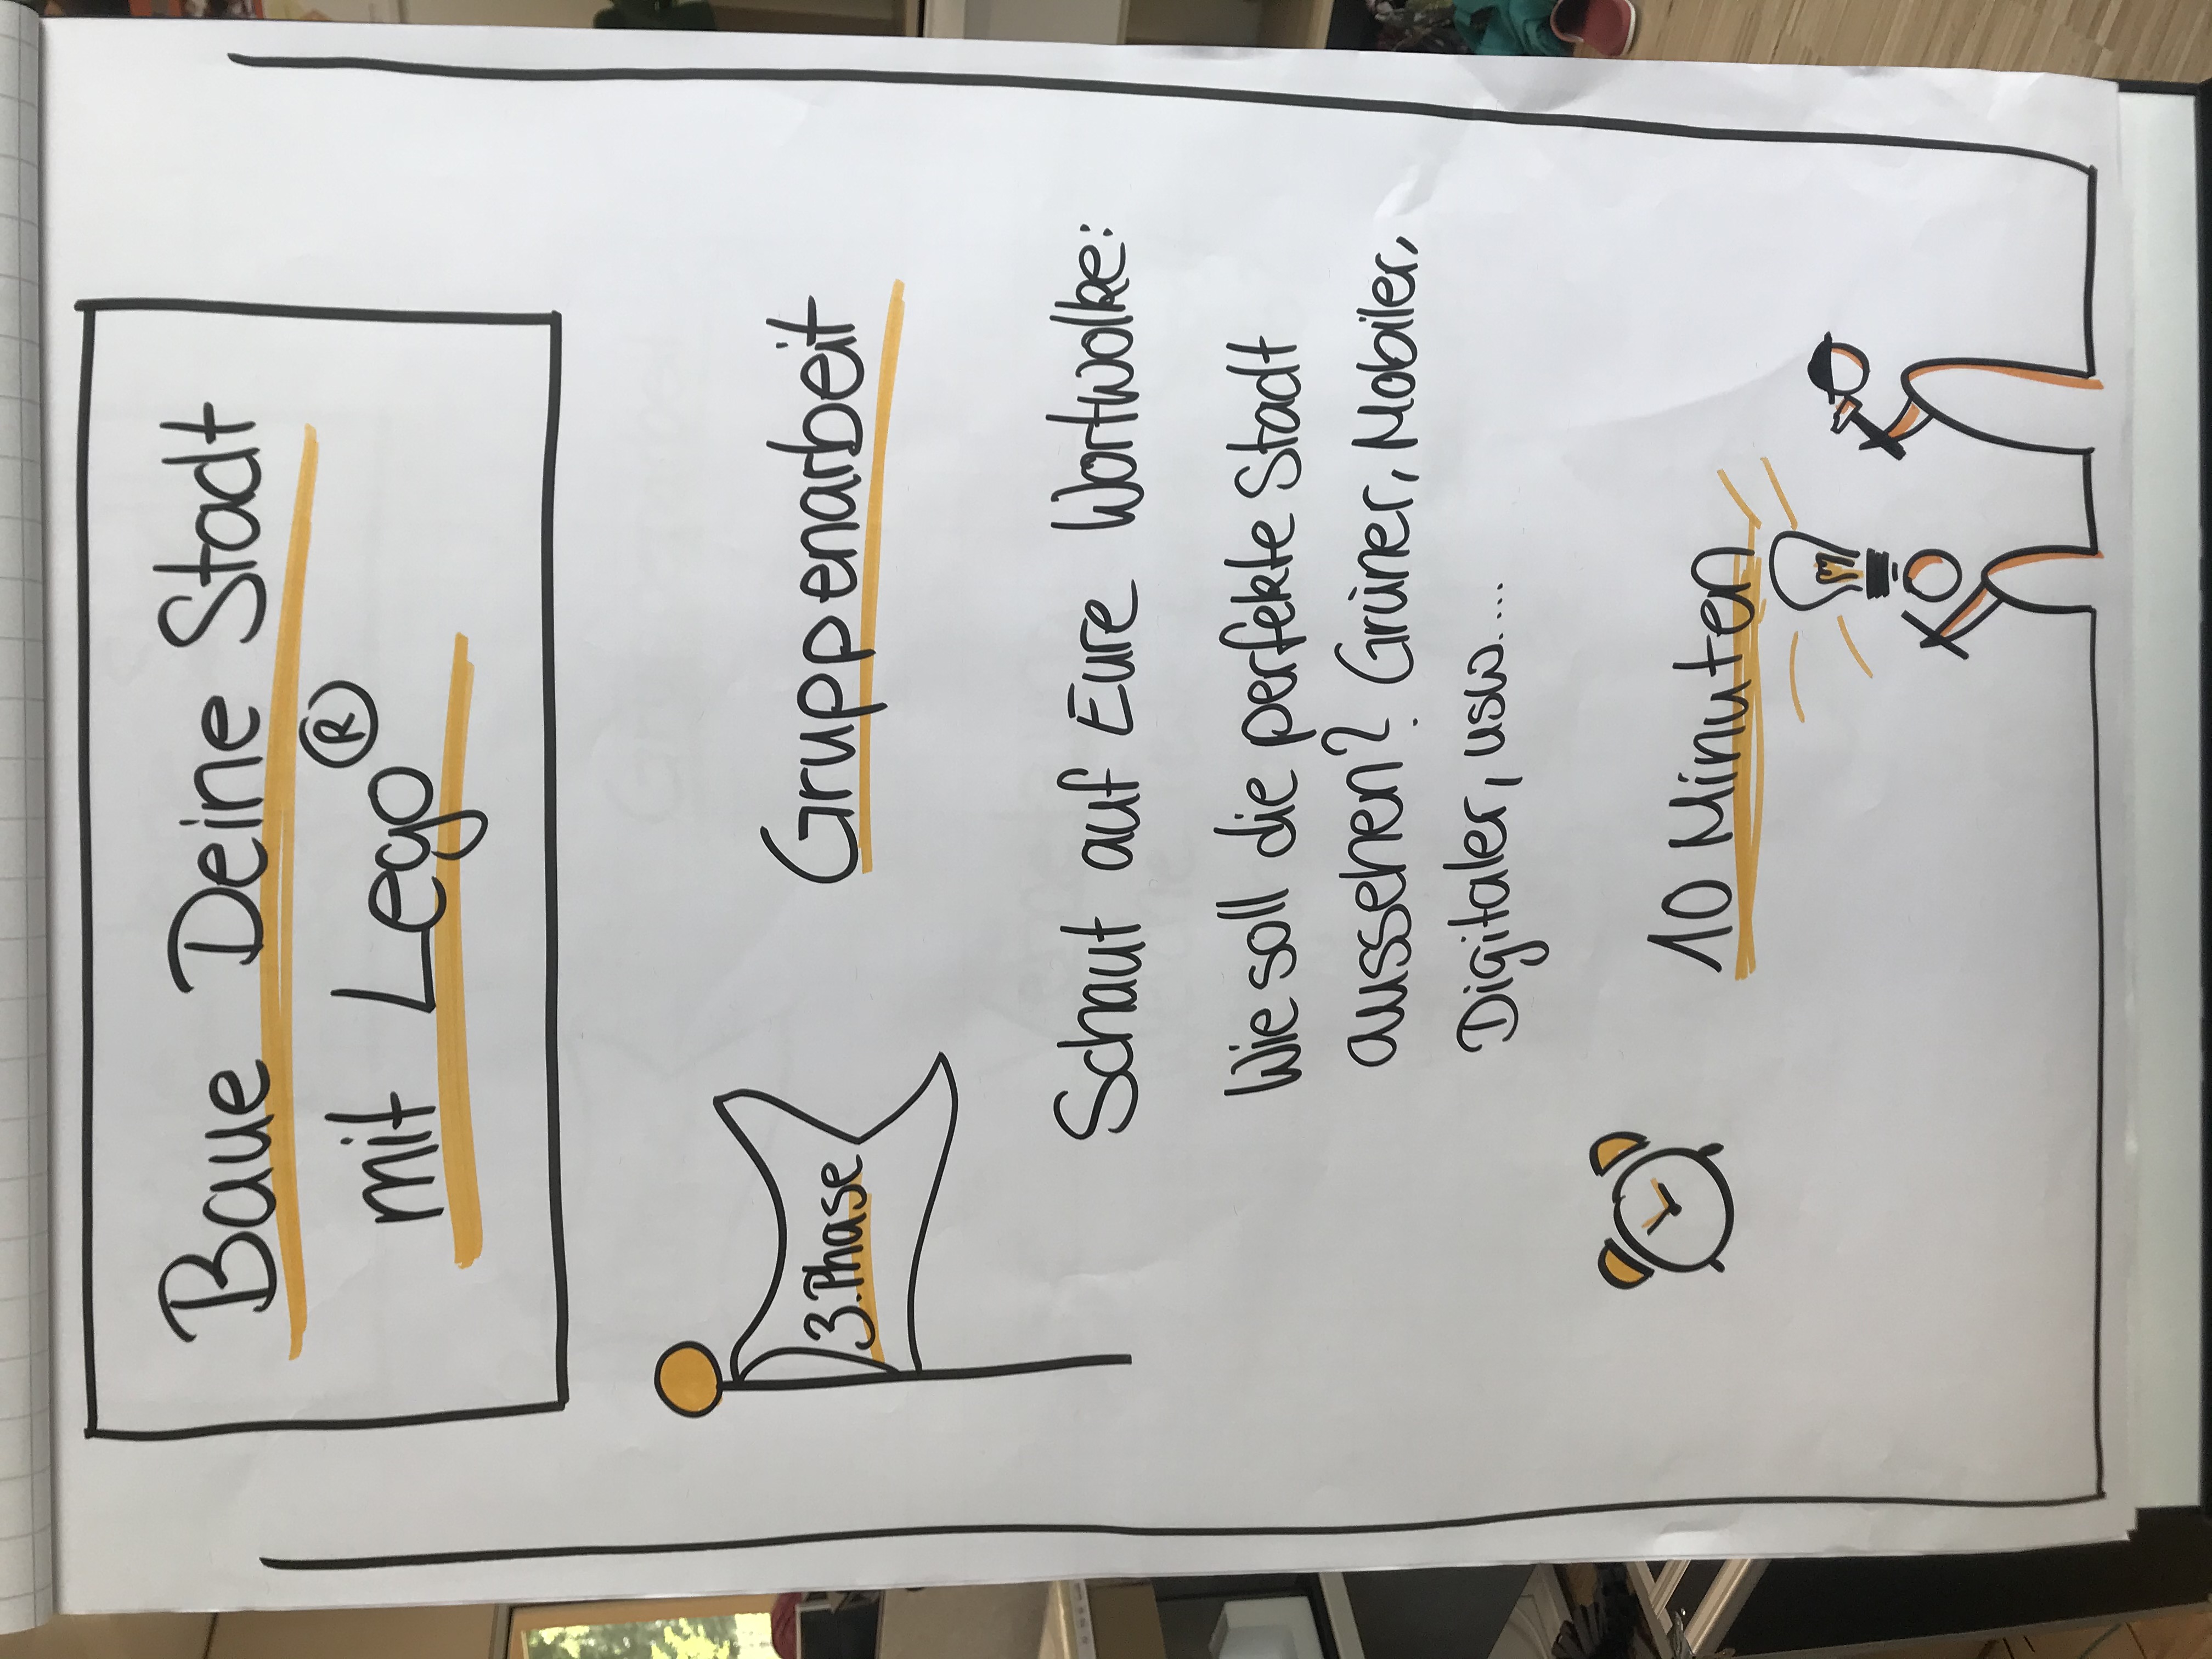 Baue Deine Stadt
mit Lego®
3. Phase
Gruppenarbeit
Schaut auf Eure Wortwolke:
Wie soll die perfekte Stadt
aussehen? Grüner, Mobiler,
Digitaler, usw....
10 Minuten